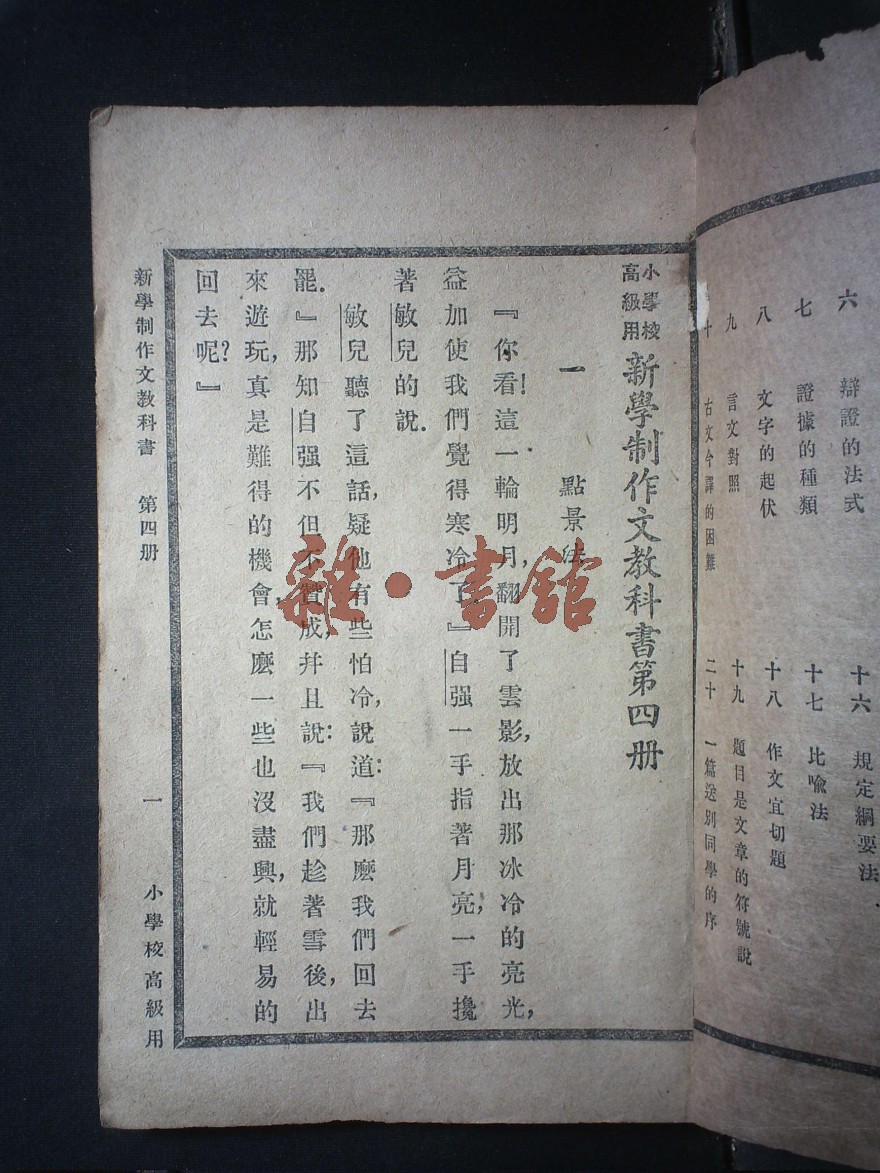 六 辯證的法式
七 證據的種類
八 文字的起伏
九 言文對照
十 古文今譯的困難
十六 規定綱要法
十七 比喻法
十八 作文宜切題
十九 題目是文章的符號說
二十 一篇送別同學的序
小學校高級用
新學制作文教科書第四册
一 點景法
『你看!這一輪明月,翻開了雲影,放出那冰冷的亮光,
益加使我們覺得寒冷了。』自强一手指著月亮,一手攙
著敏兒的說.
敏兒聽了這話,疑他有些怕冷,說道:『那麼我們回去
罷.』那知自强不但不贊成,幷且說:『我們趁著雪後,出
來遊玩,真是難得的機會,怎麼一些也沒盡興,就輕易的
回去呢?』
新學制作文教科書 第四册 一 小學校高級用
雜·書館